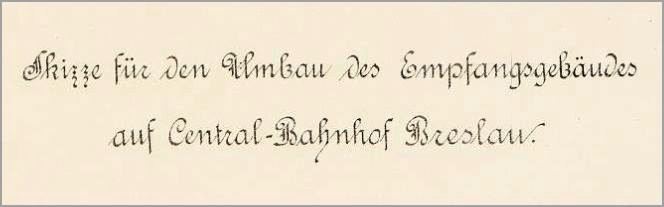 Skizze für den Umbau des Empfangsgebäudes
auf Central-Bahnhof Breslau.